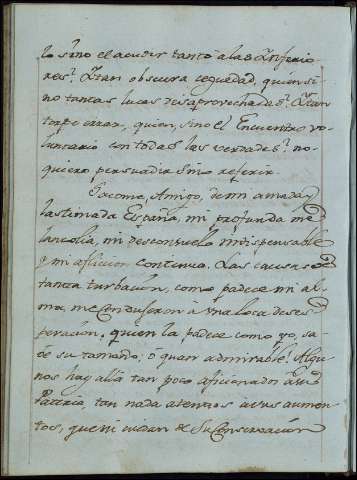 lo sino el acudir tanto a las Inferio
res? Tan obscura ceguedad, quien si
no tantas luces desaprovechadas? Tan
torpe errar, quien, sino el Encuentro vo
luntario con todas las verdades? no
quiero persuadir sino referir.
Lacome, Amigo, de mi amada, y
lastimada España, mi profunda me
lancolia, mi desconsuelo indispensable
y mi afliccion continua. Las causas de
tanta turbacion, como padece mi al
ma, me conduxeran à una loca deses
peracion; quien la padece como yo, sa
be su tamaño; ò quan admirable! Algu
nos hay allà tan poco aficionados à su
Patria tan nada atentos à sus aumen
tos, que ni cuidan de su Conservacion